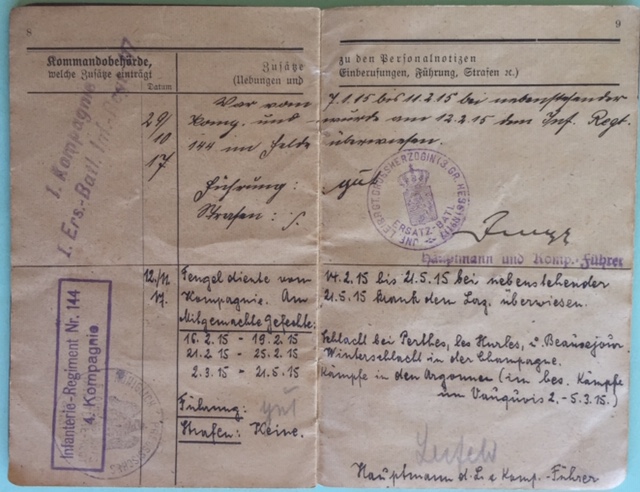 8
Kommandobehörde,
welche Zusätze einträgt
Datum
Zusätze
(Uebungen und
9
zu den Personalnotizen
Einberufungen, Führung, Strafen ꝛc.)
I. Kompagnie
I. Ers.-Batl. Inf.-Regt. 117
29/10 17
War vom 7.1.15 bis 11.2.15 bei nebenstehender
Komp. und wurde am 12.2.15 dem Inf. Regt.
144 im Felde überwiesen.
Führung: gut
Strafen: /.
INF. LEIBRGT. GROSSHERZOGIN (3. GR. HESS.) Nr. 117
ERSATZ-BATL.
Hauptmann und Komp.-Führer
Infanterie-Regiment Nr. 144
4. Kompagnie
12./11 17.
Fengel diente vom 14.2.15 bis 21.5.15 bei nebenstehender
Kompagnie. Am 21.5.15 krank dem Laz. überwiesen.
Mitgemachte Gefechte:
16.2.15 - 19.2.15 Schlacht bei Perthes, les Hurles, u. Beausejour
21.2.15 - 25.2.15 Winterschlacht in der Champagne.
2.3.15 - 21.5.15 Kämpfe in den Argonnen (im bes. Kämpfe
um Vauquois 2.-5.3.15.)
Führung: gut
Strafen: Keine.
Hauptmann d. L. u. Komp.-Führer